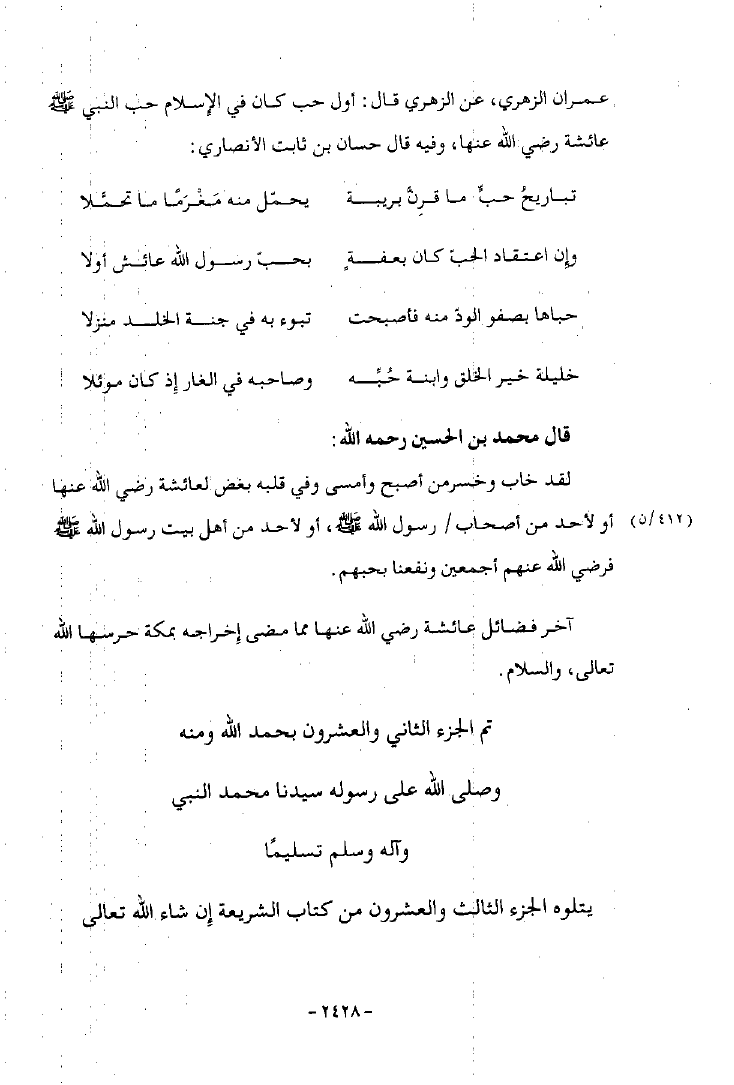 عمران الزهري، عن الزهري قال: أول حب كان في الإسلام حب النبي ﷺ
عائشة رضي الله عنها، وفيه قال حسان بن ثابت الأنصاري:
تباريحُ حبٍّ ما قرنَّ بريبة يحمّل منه مَغْرَمًا ما تحمَّلا
وإن اعتقاد الحبّ كان بعفةٍ بحبّ رسول الله عائش أولا
حباها بصفو الودّ منه فأصبحت تبوء به في جنة الخلد منزلا
خليلة خير الخلق وابنة حُبِّه وصاحبه في الغار إذ كان موئلا
قال محمد بن الحسين رحمه الله:
لقد خاب وخسرمن أصبح وأمسى وفي قلبه بغض لعائشة رضي الله عنها
(٤١٢/ن) أو لأحد من أصحاب/ رسول الله ﷺ، أو لأحد من أهل بيت رسول الله ﷺ
فرضي الله عنهم أجمعين ونفعنا بحبهم.
آخر فضائل عائشة رضي الله عنها مما مضى إخراجه بمكة حرسها الله
تعالى، والسلام.
تم الجزء الثاني والعشرون بحمد الله ومنه
وصلى الله على رسوله سيدنا محمد النبي
وآله وسلم تسليمًا
يتلوه الجزء الثالث والعشرون من كتاب الشريعة إن شاء الله تعالى
-٢٤٢٨-